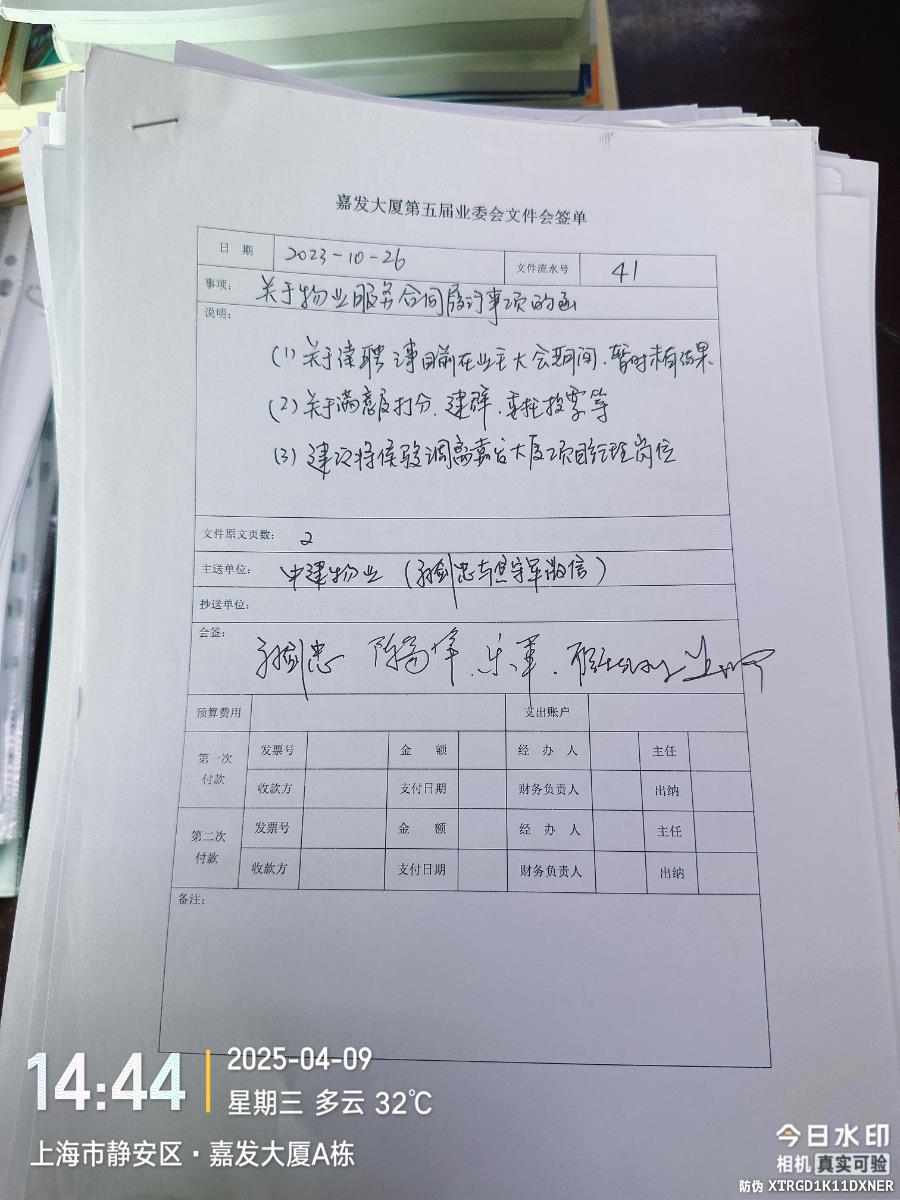 嘉发大厦第五届业委会文件会签单
日 期 2023-10-26 文件流水号 41
事项: 关于物业服务合同履行事项的函
说明:
(1) 关于续聘事目前在业主大会期间,暂时未有结果
(2) 关于满意度打分、建群、委托投票等
(3) 建议将侯骏调离嘉发大厦项目经理岗位
文件原文页数: 2
主送单位: 中建物业 (剑忠与守军微信)
抄送单位:
会签: 剑忠 乐军
预算费用 支出账户
第一次付款 发票号 金 额 经 办 人 主任
收款方 支付日期 财务负责人 出纳
第二次付款 发票号 金 额 经 办 人 主任
收款方 支付日期 财务负责人 出纳
备注:
14:44 2025-04-09
星期三 多云 32℃
上海市静安区·嘉发大厦A栋
今日水印
相机 真实可验
防伪 XTRGD1K11DXNER